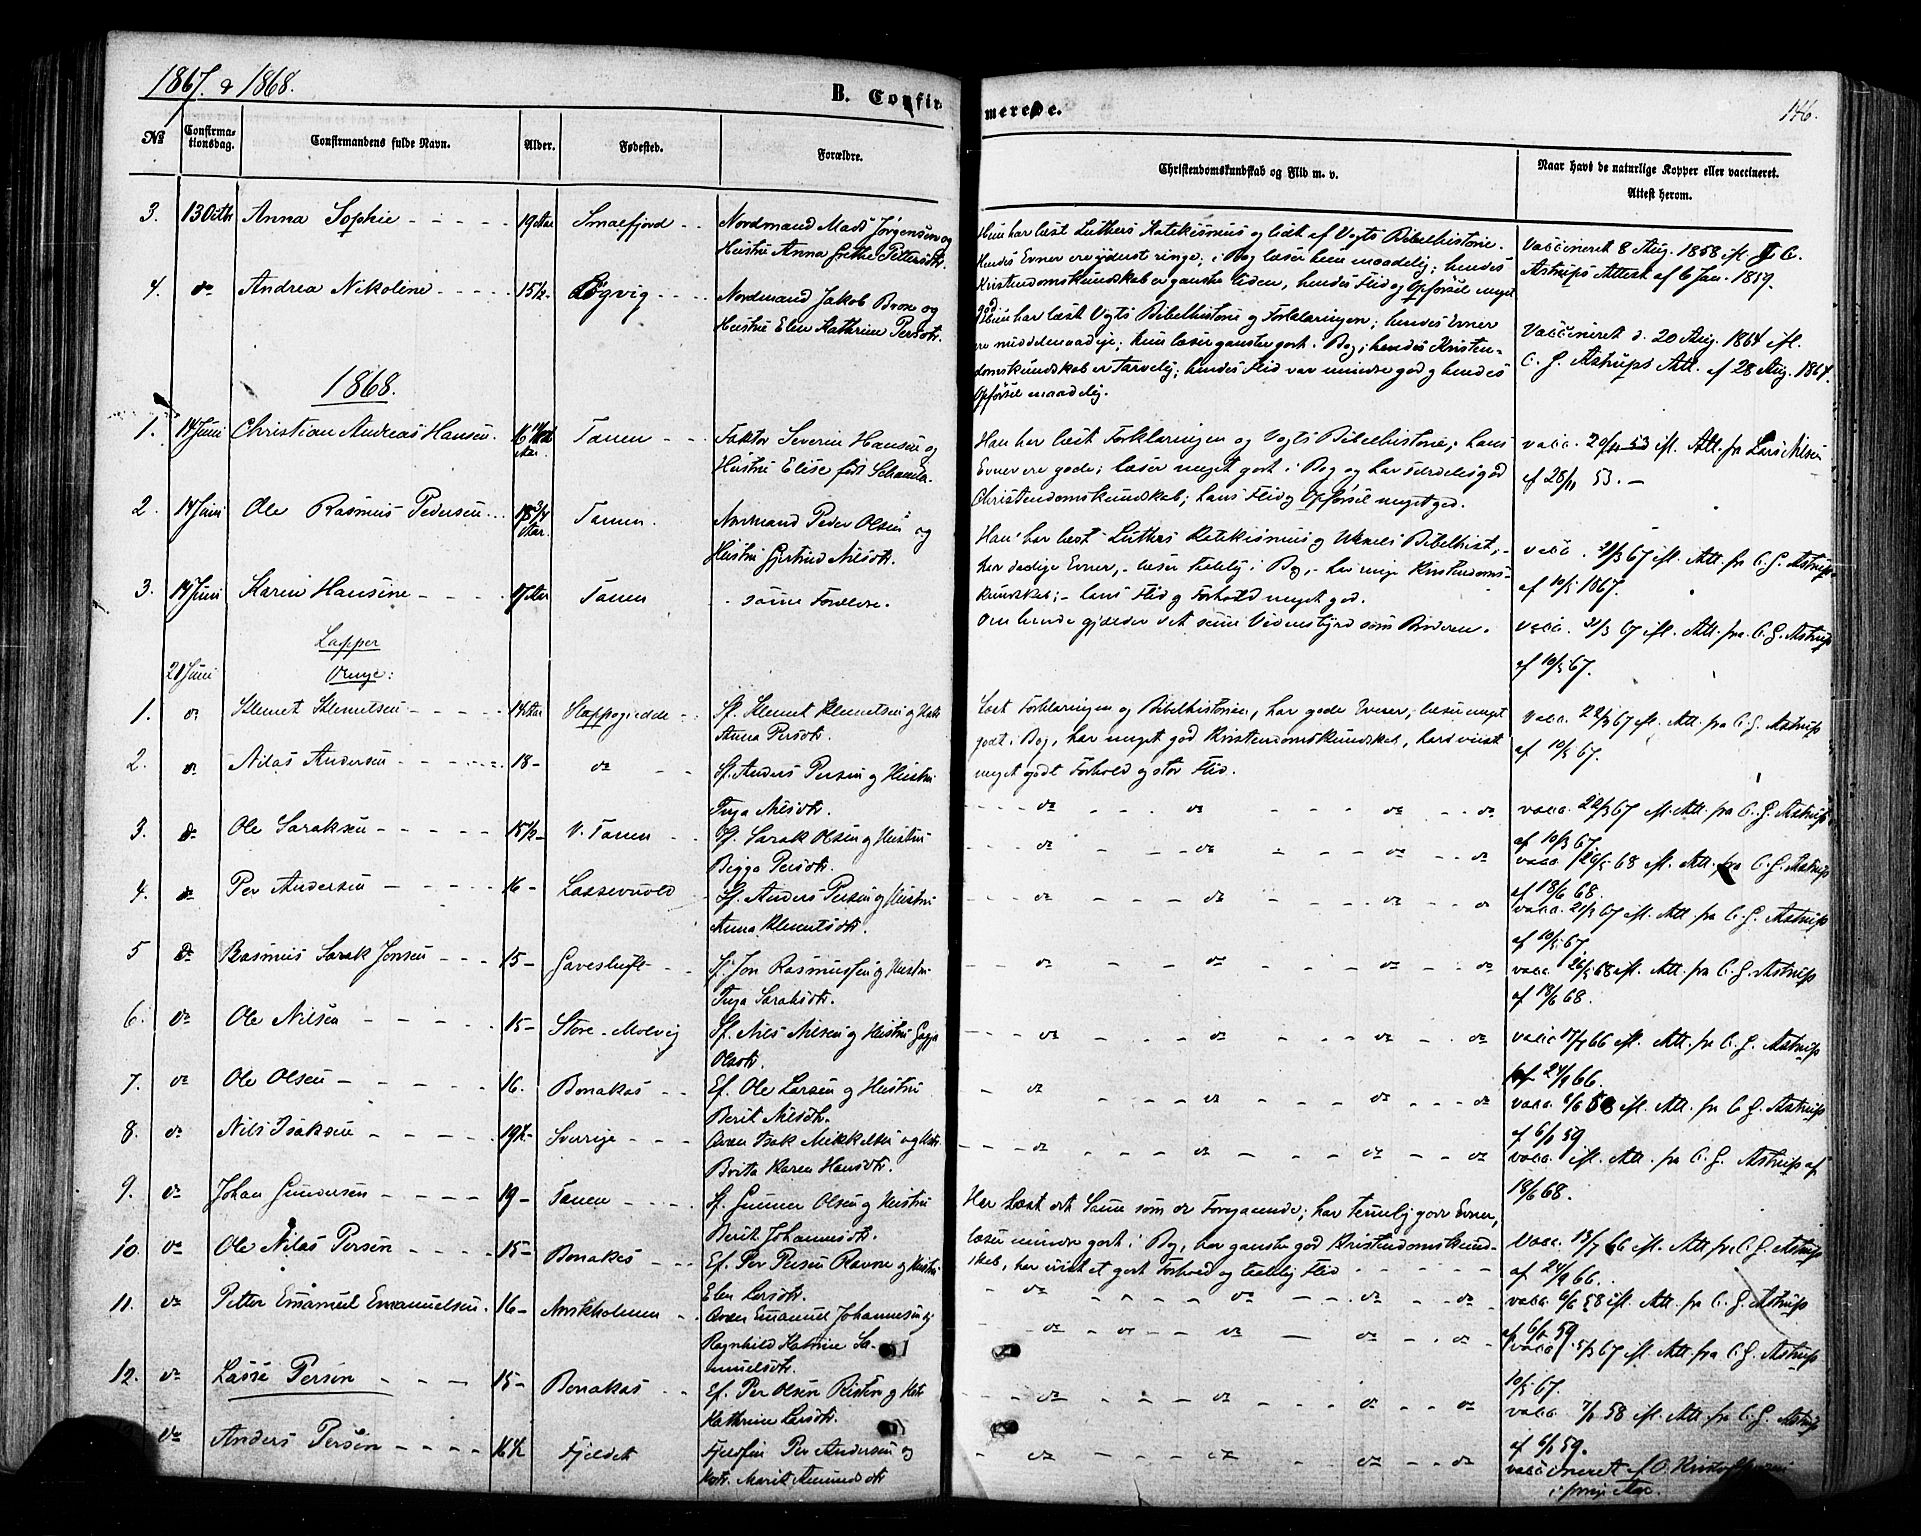 1867 & 1868.
B. Confir-
merede.
146.
No
Confirma-
tionsdag.
Confirmandens fulde Navn.
Alder.
Fødested.
Forældre.
Christendomskundskab og Flid m. v.
Naar havt de naturlige Kopper eller vaccineret.
Attest herom.
3. 13 Octbr Anna Sophie 19 Aar Smalfjord Nordmand Mads Jørgensen og
Hustru Anna Grethe Pettersdtr.
Hun har læst Luthers Katekismus og lidt af Vogts Bibelhistorie.
Hendes Evner ere yderst ringe, i Bog læser hun maadelig; hendes
Kristendomskundskab er ganske liden, hendes Flid og Opførsel meget
god
Vaccineret 8 Aug. 1858 ifl. C.
Astrups Attest af 6 Jan. 1859.
4. do Andrea Nikoline 15½ Nordmand Jakob og
Hustru Elen Kathrine Persdtr.
Hun har læst Vogts Bibelhistorie og Forklaringen; hendes Evner
ere middelmaadige, hun læser ganske godt i Bog; hendes Kristen-
domskundskab er tarvelig; hendes Flid var mindre god og hendes
Opførsel maadelig.
Vaccineret d. 20 Aug. 1864 ifl.
C. G. Astrups Att. af 28 Aug. 1867.
1868.
1. 14 Juni Christian Andreas Hansen Tanen Faktor Severin Hansen og
Hustru Elise født
Han har læst Forklaringen og Vogts Bibelhistorie; hans
Evner ere gode; læser meget godt i Bog og har særdeles god
Christendomskundskab; hans Flid og Opførsel meget god.
vacc. ifl. Att. fra Lars Nilsen
af 28/11 53.
2. 14 Juni Ole Rasmus Pedersen 18 3/4 Aar. Tanen. Normand Peder Olsen og
Hustru Gjertrud Nilsdtr.
Han har læst Luthers Katekismus og Bibelhist.,
har Evner, læser i Bog, har Kristendoms-
kundskab; hans Flid og Forhold meget god.
vacc. 21/3 67 ifl. Att. fra C. G. Astrup
af 10/5 1867.
3. 14 Juni Karen Hansine 17 Aar Tanen samme Forældre.
Om hende gjælder det samme Vidnesbyrd som Broderen.
vacc. 21/3 67 ifl. Att. fra C. G. Astrup
af 10/5 67.
Lapper
21 Juni Drenge:
1. do Klemet Klemetsen 14 Aar Stappogiedde Sf. Klemet Klemetsen og Hustr
Anna Persdtr.
Læst Forklaringen og Bibelhistorien, har gode Evner, læser meget
godt i Bog, har meget god Kristendomskundskab, har vist
meget godt Forhold og stor Flid.
vacc. 22/3 67 ifl. Att. fra C. G. Astrup
af 10/5 67.
2. do Nilas Andersen 18 do Sf. Anders Persen og Hustru
Inga Nilsdtr.
do do do do
vacc. 22/3 67 ifl. Att. fra C. G. Astrup
af 10/5 67.
3. do Ole Saraksen 15½ V. Tanen Sf. Sarak Olsen og Hustru
Bigga Persdtr.
do do do do
vacc. 26/5 68 ifl. Att. fra C. G. Astrup
af 18/6 68.
4. do Per Andersen 16 Lassevuold Sf. Anders Persen og Hustru
Anna Klemetsdtr.
do do do do
vacc. 21/3 67 ifl. Att. fra C. G. Astrup
af 10/5 67.
5 do Rasmus Sarak Jonsen 15 Gavesluft Sf. Jon Rasmussen og Hustru
Inga Saraksdtr.
do do do do
vacc. 26/5 68 ifl. Att. fra C. G. Astrup
af 18/6 68.
6. do Ole Nilsen 15 Store-Molvig Sf. Nils Nilsen og Hustru Gagja
Olsdtr.
do do do do
vacc. 17/7 66 ifl. Att. fra C. G. Astrup
af 24/9 66.
7. do Ole Olsen 16. Bonakas Ef. Ole Larsen og Hustru
Berit Nilsdtr.
do do do do
vacc. 6/6 58 ifl. Att. fra C. G. Astrup
af 6/1 59.
8. do Nils Isaksen 19½ Sverige Isak Mikkelsen og Hustr.
Brita Karen Hansdtr.
do do do do
vacc. ifl. Att. fra C. G. Astrup af
18/6 68.
9. do Johan Gundersen 19 Tanen Sf. Gunner Olsen og Hustru
Berit Johannesdtr.
Har læst det Samme som de Foregaaende; har temmelig gode Evner,
læser mindre godt i Bog, har ganske god Kristendomskund-
skab, har vist et godt Forhold og Flid
Vacc. 13/7 66 ifl. Att. fra C. G. Astrup
af 24/9 66.
10. do Ole Nilas Persen 15 Bonakas Ef. Per Persen Ravna og Hustru
Elen Larsdtr.
do do do do
vacc. 6/6 58 ifl. Att. fra C. G. Astrup
af 6/1 59.
11. do Petter Emanuel Emanuelsen 16 Emanuel Johannesen og
Ragnhild Katrine Sa-
muelsdtr.
do do do do
vacc. 5/3 67 ifl. Att. fra C. G. Astrup
10/5 67.
12. do Lasse Persen 15 Bonakas Ef. Per Olsen Risten og Hstr
Kathrine Larsdtr.
do do do do
vacc. 7/1 58 ifl. Att. fra C. G. Astrup
af 6/1 59.
do Anders Persen 16½ Fjeldet Fjeldfin Per Andersen og
Hstr. Marit Amundsdtr
do do do do
vaccineret af O. Kristoffersen
i forrige Aar.